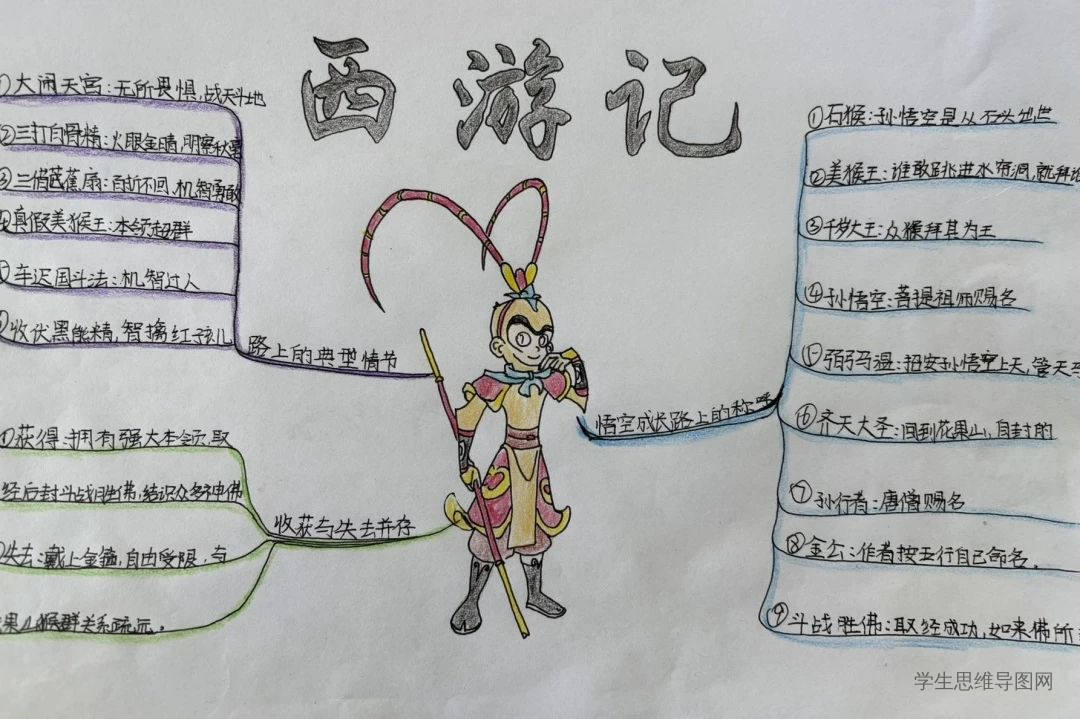 西游记
①大闹天宫:无所畏惧,战天斗地
②三打白骨精:火眼金睛,明察秋毫
③三借芭蕉扇:百折不回,机智勇敢
真假美猴王:本领超群
车迟国斗法:机智过人
收伏黑熊精,智擒红孩儿
路上的典型情节
①获得:拥有强大本领,取
经后封斗战胜佛,结识众多神佛
失去:戴上金箍,自由受限,与
果山猴群关系疏远。
收获与失去并存
悟空成长路上的称呼
①石猴:孙悟空是从石头出世
②美猴王:谁敢跳进水帘洞,就拜
③千岁大王:众猴拜其为王
④孙悟空:菩提祖师赐名
弼马温:招安孙悟空上天,管天
⑥齐天大圣:回到花果山,自封的
⑦孙行者:唐僧赐名
⑧金公:作者按五行自己命名。
⑨斗战胜佛:取经成功,如来佛所
学生思维导图网